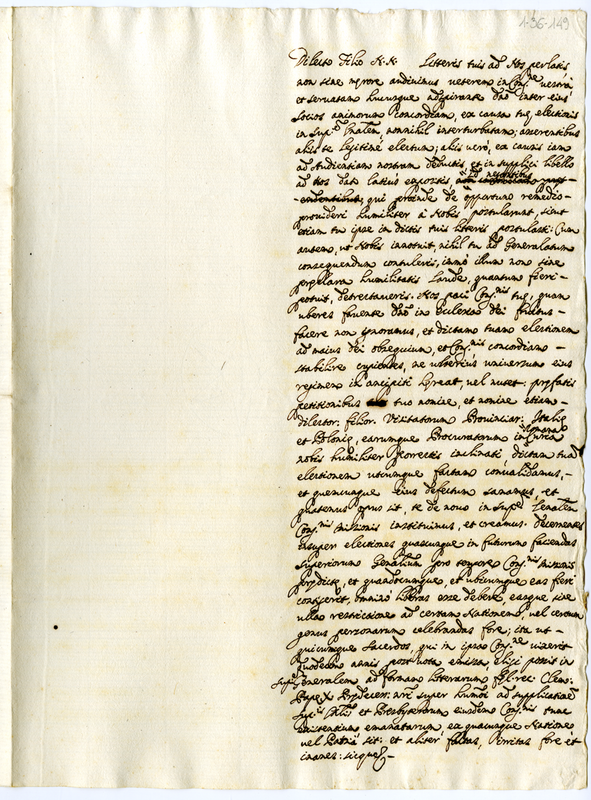 1-36-149
Dilecto Filio N.N. Litteris tuis ad Nos perlatis
non sine mærore audivimus veterem in Cong.ne vestra
et servatam hucusque adspirante Dno inter eius
socios animorum Concordiam, ex causa tuę electionis
in Sup.m Gnalem, nonnihil interturbatam; asserentibus
aliis te legitime electum; aliis verò, ex causis iam
ad Audientiam nostram deductis, et in supplici libello
ad Nos dato latius expositis,
qui proinde de opportuno remedio
provideri humiliter à Nobis postularunt, sicut
etiam tu ipse in dictis tuis literis postulasti: Cum
autem, ut Nobis innotuit, nihil tu ad Generalatum
consequendum contuleris, immò illum non sine
humilitatis laude, quantum fieri
potuit, detrectaveris. Nos paci Cong.nis tuę, quam
uberes favente Dno in Ecclesia Dei fructus
facere non ignoramus, et dictam tuam electionem
ad maius Dei obsequium, et Cong.nis concordiam
stabilire cupientes, ne ulterius universum eius
regimen in ancipiti hæreat, vel nutet: pręfatis
petitionibus tuo nomine, et nomine etiam
dilector. filior. Visitatorum Provinciar. Italię
et Polonię, earumque Procuratorum in Romana Curia
nobis humiliter porrectis inclinati, dictam tuam
electionem utcumque factam convalidamus,
et quemcumque eius defectum sanamus, et
quatenus opus sit, te de novo in Sup.m Gnalem
Cong.nis Missionis instituimus, et creamus. Decernentes
insuper electiones quascumque in futurum faciendas
Superiorum Gnalium pro tempore Cong.nis Missionis
prędictę, et quandocumque, et ubicumque eas fieri
contigerit, omninò liberas esse debere, easque sine
ulla restrictione ad certam Nationem, vel certum
genus personarum celebrandas fore; ita ut
quicumque Sacerdos, qui in ipsa Cong.ne vixerit
duodecim annis post vota emissa, eligi possit in
Sup.m Generalem ad formam literarum fel. rec. Clem.
Papę X. Prędecess. nri super humoi ad supplicationem
Sup.is Gnlis et Presbyterorum eiusdem Cong.nis tunc
existentium emanatarum, ex quacumque Natione
vel Patria sit: et aliter factas, irritas fore et
inanes: sicque